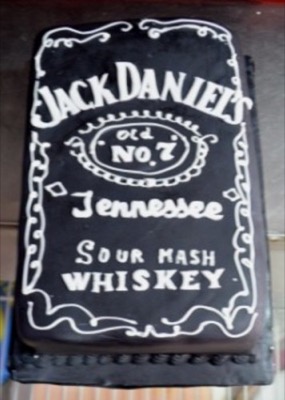 JACK DANIEL'S
OLD
NO. 7
Tennessee
SOUR MASH
WHISKEY